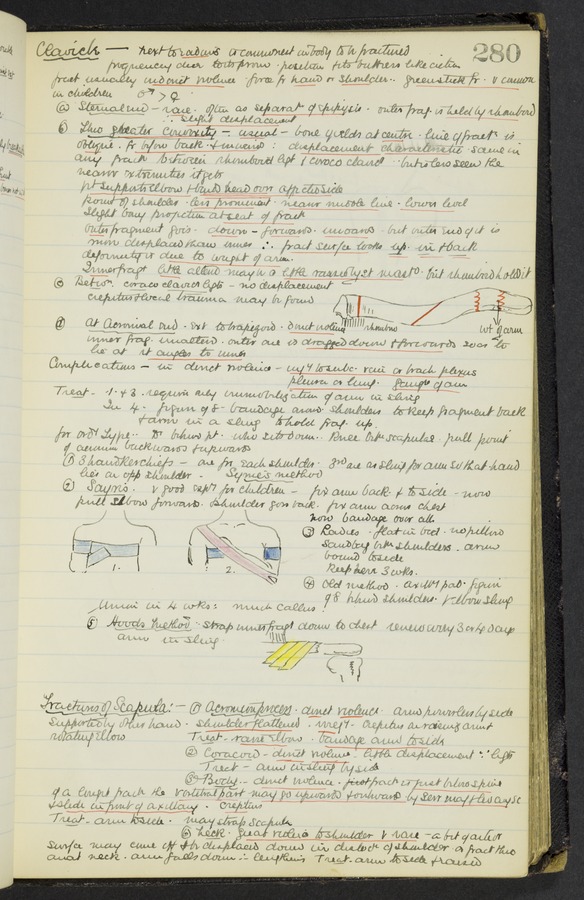 280
Clavicle — next to radius is commonest in body to be fractured
frequency due to its prom. position & its buttress like action
fract usually indirect violence force fr hand or shoulder. greenstick fr. v common
in children ♂ > ♀
(a) Sternal end — rare. often as separatn of epiphysis. outer frag is held by rhomboid
∴ slight displacement
(b) Thro greater convexity — usual — bone yields at centre. line of fract is
oblique fr before back & inwards : displacement characteristic same in
any fract between rhomboid ligt & coraco clavic but is less seen the
nearer extremities it gets
pt supports elbow & bends head over affected side
Point of shoulder less prominent. nearer middle line. lower level
Slight bony projection at seat of fract
Outer fragment goes down — forwards. inwards but outer end of it is
more displaced than inner ∴ fract surface looks up in & back
deformity is due to weight of arm.
Inner fragt little altered may be a little raised by st mastd. but rhomboid hold it
(c) Betwn coraco clavic ligts — no displacement
crepitus & local trauma may be found
rhomboid
wt of arm
(d) At Acromial end. ext to trapezoid. direct violence
inner frag. unaltered. outer one is dragged down & forwards so as to
lie at rt angles to inner
Complications — in direct violence — injy to subc. vein or brach plexus
pleura or lung. gangre of arm
Treat. 1 & 3. require only immobilization of arm in sling
In 4. figure of 8 bandage around shoulders to keep fragment back
& arm in a sling to hold frag. up.
for ordy type. Dr behind pt. who sits down. Knee betn scapulae. pull point
of acromium backwards & upwards
(1) 3 handkerchiefs — one for each shoulder. 3rd one as sling for arm so that hand
lies on opp shoulder. Syme's method
(2) Sayre's. v good espy for children — fix arm back & to side — now
pull elbow forwards shoulder goes back. fix arm across chest
now bandage over all
1.
2.
(3) Ladies. flat in bed. no pillow
Sandbag betn shoulders. arm
bound to side
keep here 3 wks.
(4) Old method. axilly pad. figure
of 8 behind shoulders. & elbow sling
Union in 4 wks: much callus!
(5) Hoods Method. strap inner fragt down to chest renew every 3 or 4 days
arm in sling.
Fractures of Scapula:— (1) Acromion process. direct violence. arm powerless by side
supported by other hand. shoulder flattened. irregr. crepitus on raising arm &
rotating elbow Treat. raise elbow. bandage arm to side
(2) Coracoid — direct violence. little displacement ∵ ligts
Treat — arm in sling by side
(3) Body — direct violence. fract is just below spine
of a longit fract the vertebral part may go upwards & outwards by serr mag &
& slide in front of axillary. Crepitus
Treat — arm to side. may strap scapula
(4) Neck. great violence to shoulder v rare — a bit of articr
surface may come off & be displaced down in dislocn of shoulder or fract thro
anat neck. arm falls down ∴ lengthens Treat. arm to side & raised